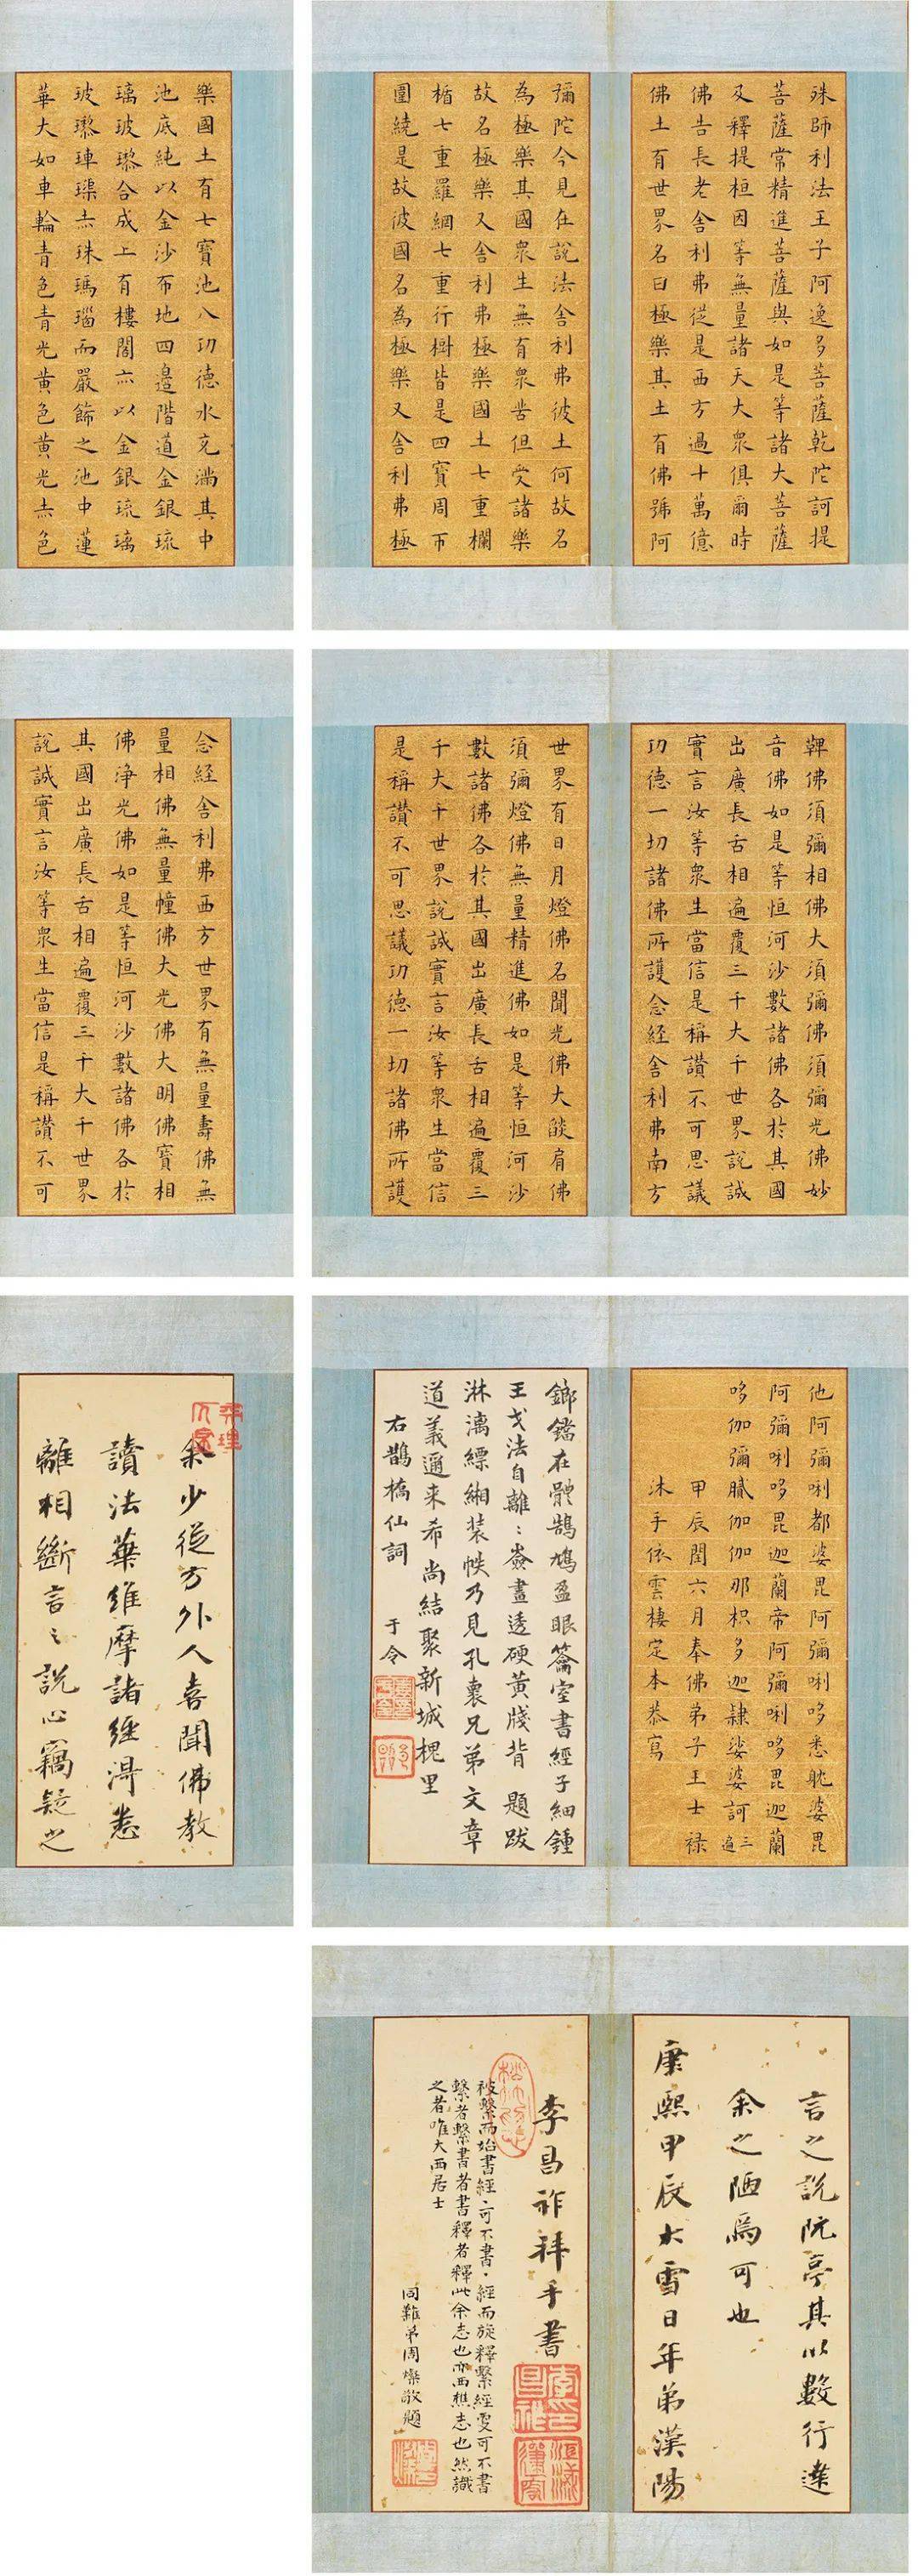 殊師利法王子阿逸多菩薩乾陀訶提
菩薩常精進菩薩與如是等諸大菩薩
及釋提桓因等無量諸天大衆俱爾時
佛告長老舍利弗從是西方過十萬億
佛土有世界名曰極樂其土有佛號阿
彌陀今見在說法舍利弗彼土何故名
為極樂其國衆生無有衆苦但受諸樂
故名極樂又舍利弗極樂國土七重欄
楯七重羅網七重行樹皆是四寶周帀
圍繞是故彼國名為極樂又舍利弗極
樂國土有七寶池八功德水充滿其中
池底純以金沙布地四邉階道金銀琉
璃玻瓈合成上有樓閣亦以金銀琉璃
玻瓈硨磲赤珠瑪瑙而嚴飾之池中蓮
華大如車輪青色青光黃色黃光赤色
鞞佛須彌相佛大須彌佛須彌光佛妙
音佛如是等恒河沙數諸佛各於其國
出廣長舌相遍覆三千大千世界說誠
實言汝等衆生當信是稱讚不可思議
功德一切諸佛所護念經舍利弗南方
世界有日月燈佛名聞光佛大燄肩佛
須彌燈佛無量精進佛如是等恒河沙
數諸佛各於其國出廣長舌相遍覆三
千大千世界說誠實言汝等衆生當信
是稱讚不可思議功德一切諸佛所護
念經舍利弗西方世界有無量壽佛無
量相佛無量幢佛大光佛大明佛寶相
佛淨光佛如是等恒河沙數諸佛各於
其國出廣長舌相遍覆三千大千世界
說誠實言汝等衆生當信是稱讚不可
他阿彌唎都婆毘阿彌唎哆悉眈婆毘
阿彌唎哆毘迦蘭帝阿彌唎哆毘迦蘭
哆伽彌膩伽伽那枳多迦隸娑婆訶三遍
甲辰閏六月奉佛弟子王士祿
沐手依雲棲定本恭寫
鎯鐺在體鵠鳩盈眼籥室書經子細鍾
王戈法自離離叅畫透硬黃牋背 題跋
淋漓縹緗装帙乃見孔裏兄弟文章
道義邇来希尚結聚新城槐里
右鵲橋仙詞 于令
余少從方外人喜聞佛教
讀法華維摩諸經得悉
離相斷言言說心竊疑之
言之說阮亭其以數行達
余之陋焉可也
康熙甲辰大雪日年弟漢陽
李昌祚拜手書
被繫而始書經經可不書經而旋釋繫經更可不書
繫者繫書者書釋者釋此余志也亦西樵志也然識
之者唯大西居士
同難弟周燦敬題